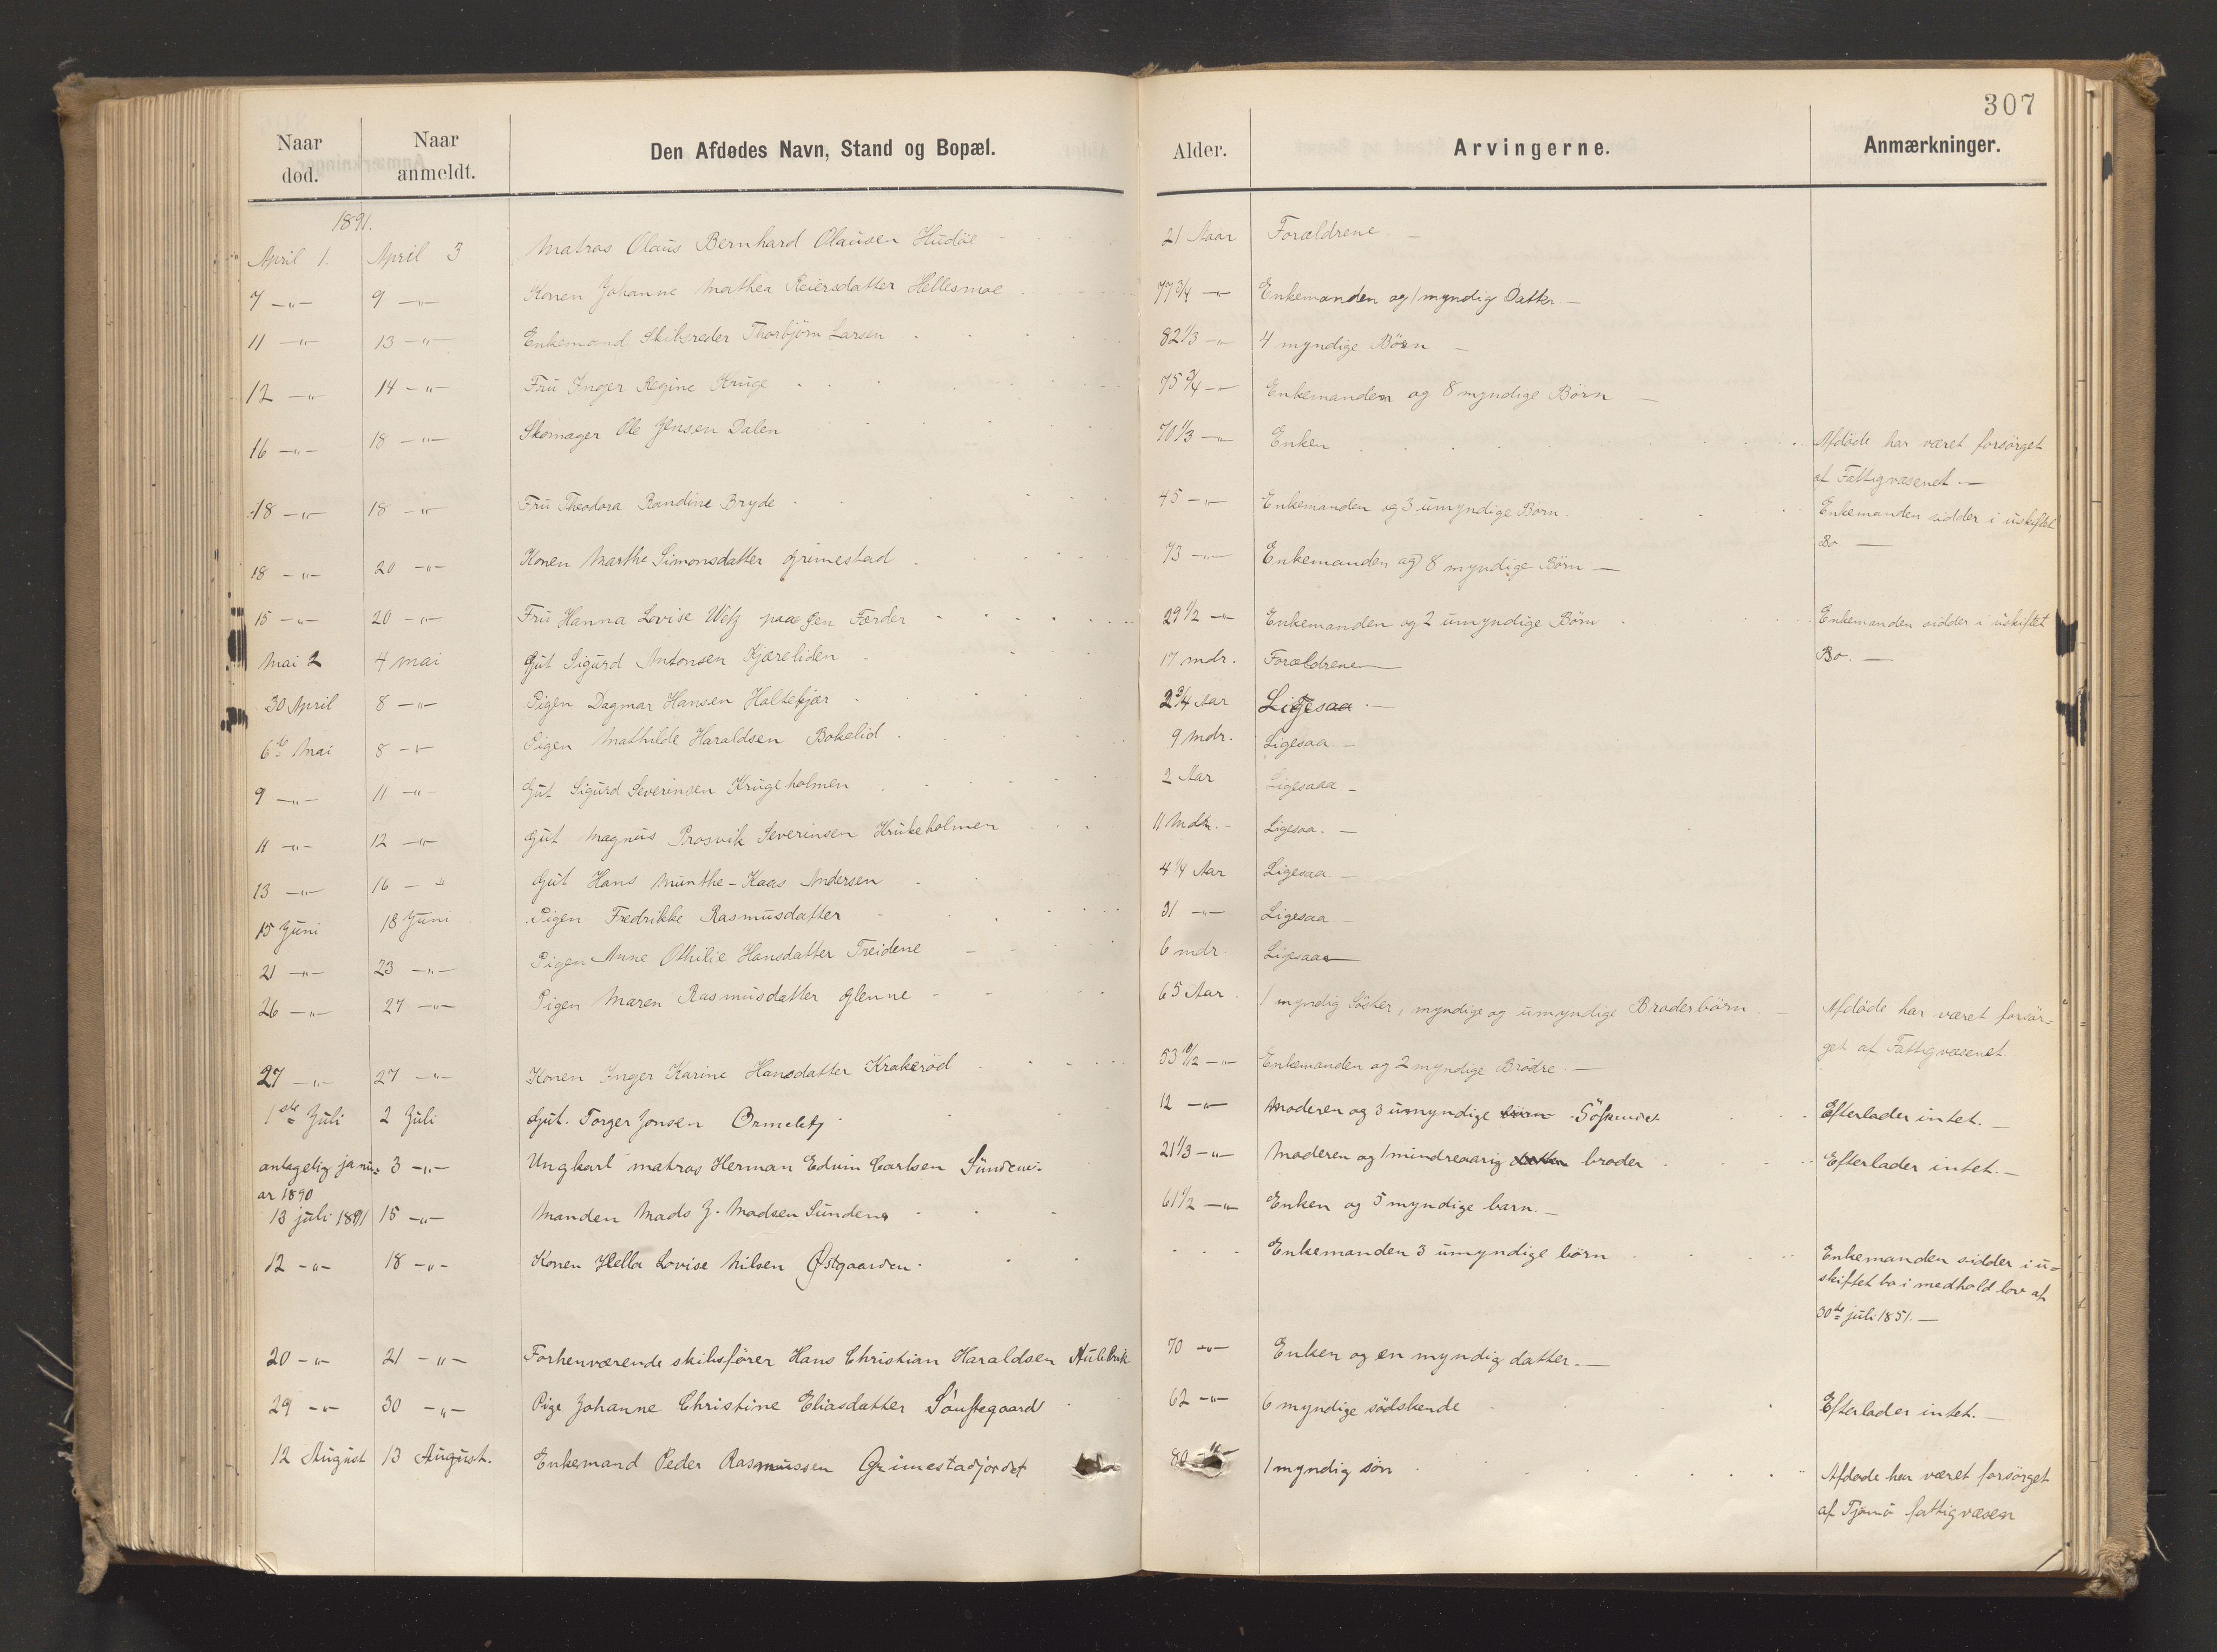 307
Naar død. Naar anmeldt. Den Afdødes Navn, Stand og Bopæl. Alder. Arvingerne. Anmærkninger.
1891.
April 1. April 3 Matros Olaus Bernhard Olausen Hudøe 21 Aar Forældrene. —
7 —"— 9 —"— Konen Johanne Mathea Reiersdatter Hellesmoe 77 3/4 —"— Enkemanden og 1 myndig Datter. —
11 —"— 13 —"— Enkemand Skibsreder Thorbjörn Larsen 82 1/3 —"— 4 myndige Börn —
12 —"— 14 —"— Fru Inger Regine Kruge 75 3/4 —"— Enkemanden og 8 myndige Börn —
16 —"— 18 —"— Skomager Ole Jensen Dalen 70 1/3 —"— Enken Afdöde har været forsörget
af Fattigvæsenet —
18 —"— 18 —"— Fru Theodora Randine Bryde 45 —"— Enkemanden og 3 umyndige Börn. Enkemanden sidder i uskiftet
Bo —
18 —"— 20 —"— Konen Marthe Simonsdatter Grimestad 73 —"— Enkemanden og 8 myndige Börn —
15 —"— 20 —"— Fru Hanna Lovise paa Færder 29 1/2 —"— Enkemanden og 2 umyndige Börn Enkemanden sidder i uskiftet
Mai 2 4 Mai Gut Sigurd Antonsen Kjæreliden 17 mdr. Forældrene — Bo. —
30 April 8 —"— Pigen Dagmar Hansen Haltekjær 2 3/4 Aar Ligesaa. —
6te Mai 8 —"— Pigen Mathilde Haraldsen Bokelid 9 Mdr. Ligesaa —
9 —"— 11 —"— Gut Sigurd Severinsen Krugeholmen 2 Aar Ligesaaa —
11 —"— 12 —"— Gut Magnus Severinsen Krukeholmen 11 Mdr. Ligesaa. —
13 —"— 16 —"— Gut Hans Munthe-Kaas Andersen 4 1/4 Aar Ligesaa —
15 Juni 18 Juni Pigen Fredrikke Rasmusdatter 31 —"— Ligesaa —
21 —"— 23 —"— Pigen Anne Othilie Hansdatter Treidene 6 mdr. Ligesaaa —
26 —"— 27 —"— Pigen Maren Rasmusdatter Glenne 65 Aar 1 myndig Söster, myndige og umyndige Broderbörn. — Afdöde har været forsör-
get af Fattigvæsenet
27 —"— 27 —"— Konen Inger Karine Hansdatter Krakeröd 53 —"— Enkemanden og 2 myndige Brödre. —
1ste Juli 2 Juli Gut. Torger Jonsen Ormelet 12 —"— Moderen og 3 umyndige börn Söskende Efterlader intet. —
antagelig janu- 3 —"— Ungkarl matros Herman Edvin Carlsen Sundene 21 1/3 —"— Moderen og 1 mindreaarig datter broder Efterlader intet. —
ar 1890
13 juli 1891 15 —"— Manden Mads J. Madsen Sundene 61 1/2 —"— Enken og 5 myndige barn. —
12 —"— 18 —"— Konen Hella Lovise Nilsen Østgaarden Enkemanden 3 umyndige börn Enkemanden sidder i u-
skiftet bo i medhold lov af
30te juli 1851. —
20 —"— 21 —"— Forhenværende skibsförer Hans Christian Haraldsen Hulebak 70 —"— Enken og en myndig datter. —
29 —"— 30 —"— Pige Johanne Christine Eliasdatter 62 —"— 6 myndige södskende Efterlader intet. —
12 August 13 August. Enkemand Peder Rasmussen Grimestadjordet 80 —"— 1 myndig sön Afdøde har været forsörget
af Tjömö fattigvæsen